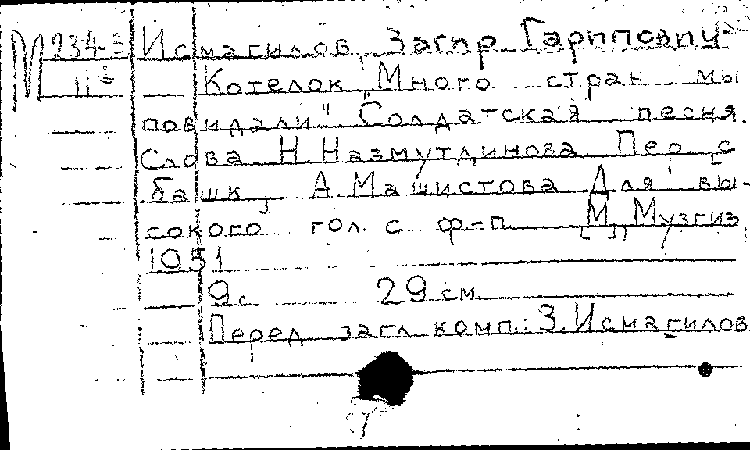 М 234-3 Исмагилов, Загир Гарипович
11= Котелок "Много стран мы
повидали". Солдатская песня.
Слова Н. Назмутдинова Пер. с
башк. А. Машистова Для вы-
сокого гол. с ф-п. [М.] Музгиз,
1951
9 с. 29 см.
Перед загл. комп.: З. Исмагилов